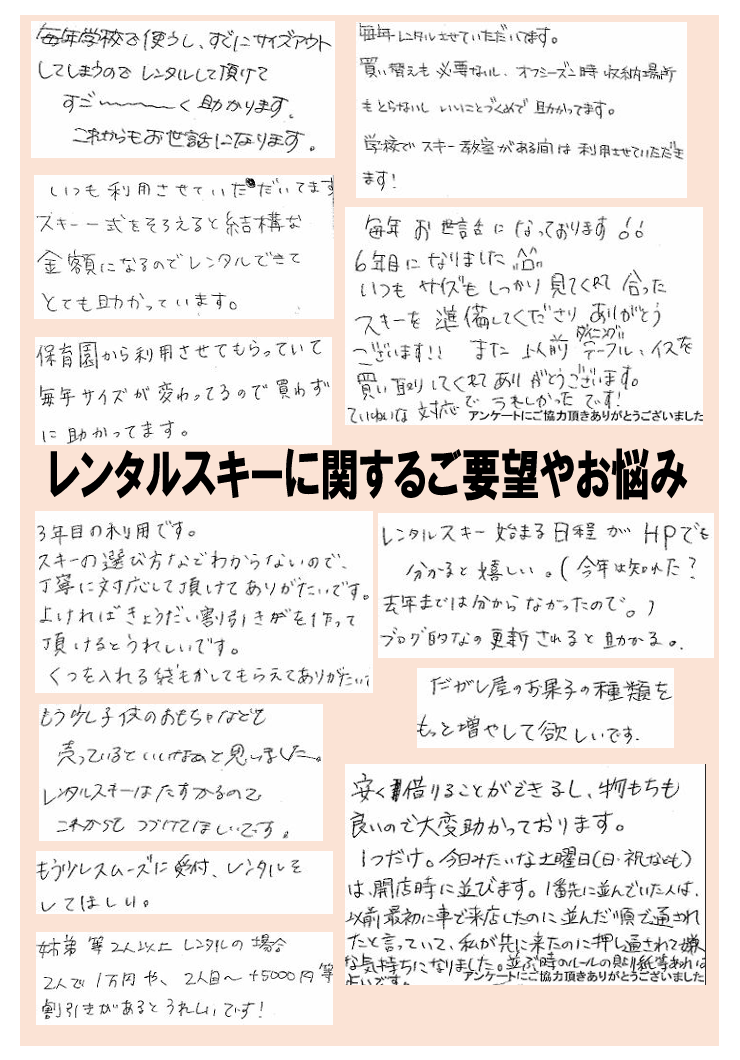 毎年学校で使うし、すぐにサイズアウト
してしまうので レンタルして頂けて
すご〜〜〜く助かります。
これからもお世話になります。
いつも利用させていただいてます
スキー一式をそろえると結構な
金額になるのでレンタルできて
とても助かっています。
保育園から利用させてもらっていて
毎年サイズが変わってるので買わず
に助かってます。
毎年レンタルさせていただいてます。
買い替えも必要ないし、オフシーズン時収納場所
もとらないし いいことづくめで助かってます。
学校でスキー教室がある間は利用させていただき
ます!
毎年お世話になっております!!
6年目になりました
いつもサイズもしっかり見てくれて合った
スキーを準備してくださりありがとう
ございます!! また以前ダイニングテーブル、イスを
買い取りしてくれてありがとうございます。
ていねいな対応でうれしかったです!
アンケートにご協力頂きありがとうございました
レンタルスキーに関するご要望やお悩み
3年目の利用です。
スキーの選び方などわからないので、
丁寧に対応して頂けてありがたいです。
よければきょうだい割引きがを作って
頂けるとうれしいです。
くつを入れる袋もかしてもらえてありがたい
もう少し子供のおもちゃなども
売っているといいなあと思いました。
レンタルスキーはたすかるので
これからも つづけてほしいです。
もう少しスムーズに受付、レンタルを
してほしい。
姉弟等2人以上レンタルの場合
2人で1万円や、2人目〜+5000円等
割引きがあるとうれしいです!
レンタルスキー始まる日程がHPでも
分かると嬉しい。(今年は知れた?
去年までは分からなかったので。)
ブログ的なの更新されると助かる。
だがし屋のお菓子の種類を
もっと増やして欲しいです.
安く借りることができるし、物もちも
良いので大変助かっております。
1つだけ。今日みたいな土曜日(日・祝なども)
は、開店時に並びます。1番先に並んでいた人は、
以前最初に車で来店したのに並んだ順で通され
たと言っていて、私が先に来たのに押し通されて嫌
な気持ちになりました。並ぶ時のルールの貼り紙等あれば
アンケートにご協力頂きありがとうございました